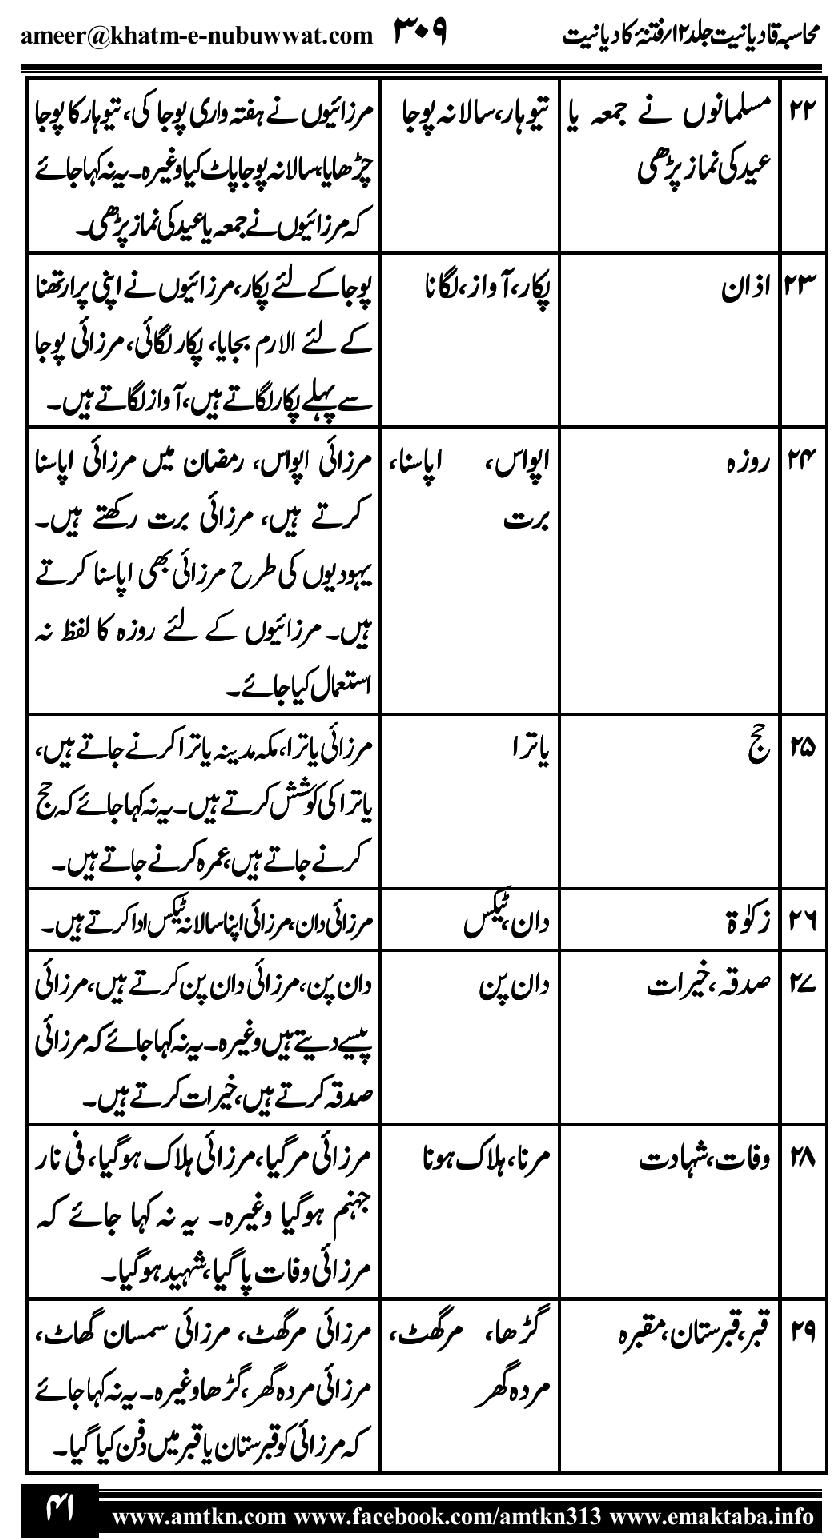 محاسبہ قادیانیت جلد ۱۲ / فتنۂ کادیانیت ۳۰۹ ameer@khatm-e-nubuwwat.com
۲۲ مسلمانوں نے جمعہ یا تیوہار، سالانہ پوجا مرزائیوں نے ہفتہ واری پوجا کی، تیوہار کا پوجا
عید کی نماز پڑھی چڑھایا، سالانہ پوجا پاٹ کیا وغیرہ۔ یہ نہ کہا جائے
کہ مرزائیوں نے جمعہ یا عید کی نماز پڑھی۔
۲۳ اذان پکار، آواز، لگانا پوجا کے لئے پکار، مرزائیوں نے اپنی پرارتھنا
کے لئے الارم بجایا، پکار لگائی، مرزائی پوجا
سے پہلے پکار لگاتے ہیں، آواز لگاتے ہیں۔
۲۴ روزہ اپواس، اپاسنا، مرزائی اپواس، رمضان میں مرزائی اپاسنا
برت کرتے ہیں، مرزائی برت رکھتے ہیں۔
یہودیوں کی طرح مرزائی بھی اپاسنا کرتے
ہیں۔ مرزائیوں کے لئے روزہ کا لفظ نہ
استعمال کیا جائے۔
۲۵ حج یاترا مرزائی یاترا، مکہ مدینہ یاترا کرنے جاتے ہیں،
یاترا کی کوشش کرتے ہیں۔ یہ نہ کہا جائے کہ حج
کرنے جاتے ہیں، عمرہ کرنے جاتے ہیں۔
۲۶ زکوٰۃ دان، ٹیکس مرزائی دان، مرزائی اپنا سالانہ ٹیکس ادا کرتے ہیں۔
۲۷ صدقہ، خیرات دان پن دان پن، مرزائی دان پن کرتے ہیں، مرزائی
پیسے دیتے ہیں وغیرہ۔ یہ نہ کہا جائے کہ مرزائی
صدقہ کرتے ہیں، خیرات کرتے ہیں۔
۲۸ وفات، شہادت مرنا، ہلاک ہونا مرزائی مرگیا، مرزائی ہلاک ہوگیا، فی نار
جہنم ہوگیا وغیرہ۔ یہ نہ کہا جائے کہ
مرزائی وفات پا گیا، شہید ہوگیا۔
۲۹ قبر، قبرستان، مقبرہ گڑھا، مرگھٹ، مرزائی مرگھٹ، مرزائی سمسان گھاٹ،
مردہ گھر مرزائی مردہ گھر، گڑھا وغیرہ۔ یہ نہ کہا جائے
کہ مرزائی کو قبرستان یا قبر میں دفن کیا گیا۔
۴۱ www.amtkn.com www.facebook.com/amtkn313 www.emaktaba.info